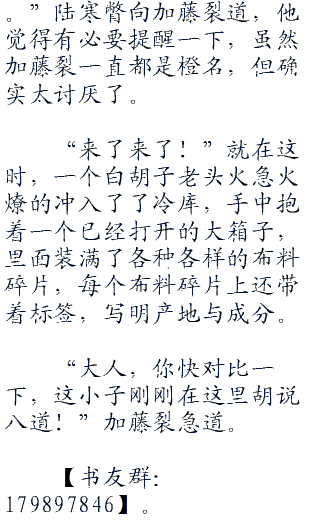 。”陆寒瞥向加藤裂道，他
觉得有必要提醒一下，虽然
加藤裂一直都是橙名，但确
实太讨厌了。
“来了来了！”就在这
时，一个白胡子老头火急火
燎的冲入了了冷库，手中抱
着一个已经打开的大箱子，
里面装满了各种各样的布料
碎片，每个布料碎片上还带
着标签，写明产地与成分。
“大人，你快对比一
下，这小子刚刚在这里胡说
八道！”加藤裂急道。
【书友群：
179897846】。